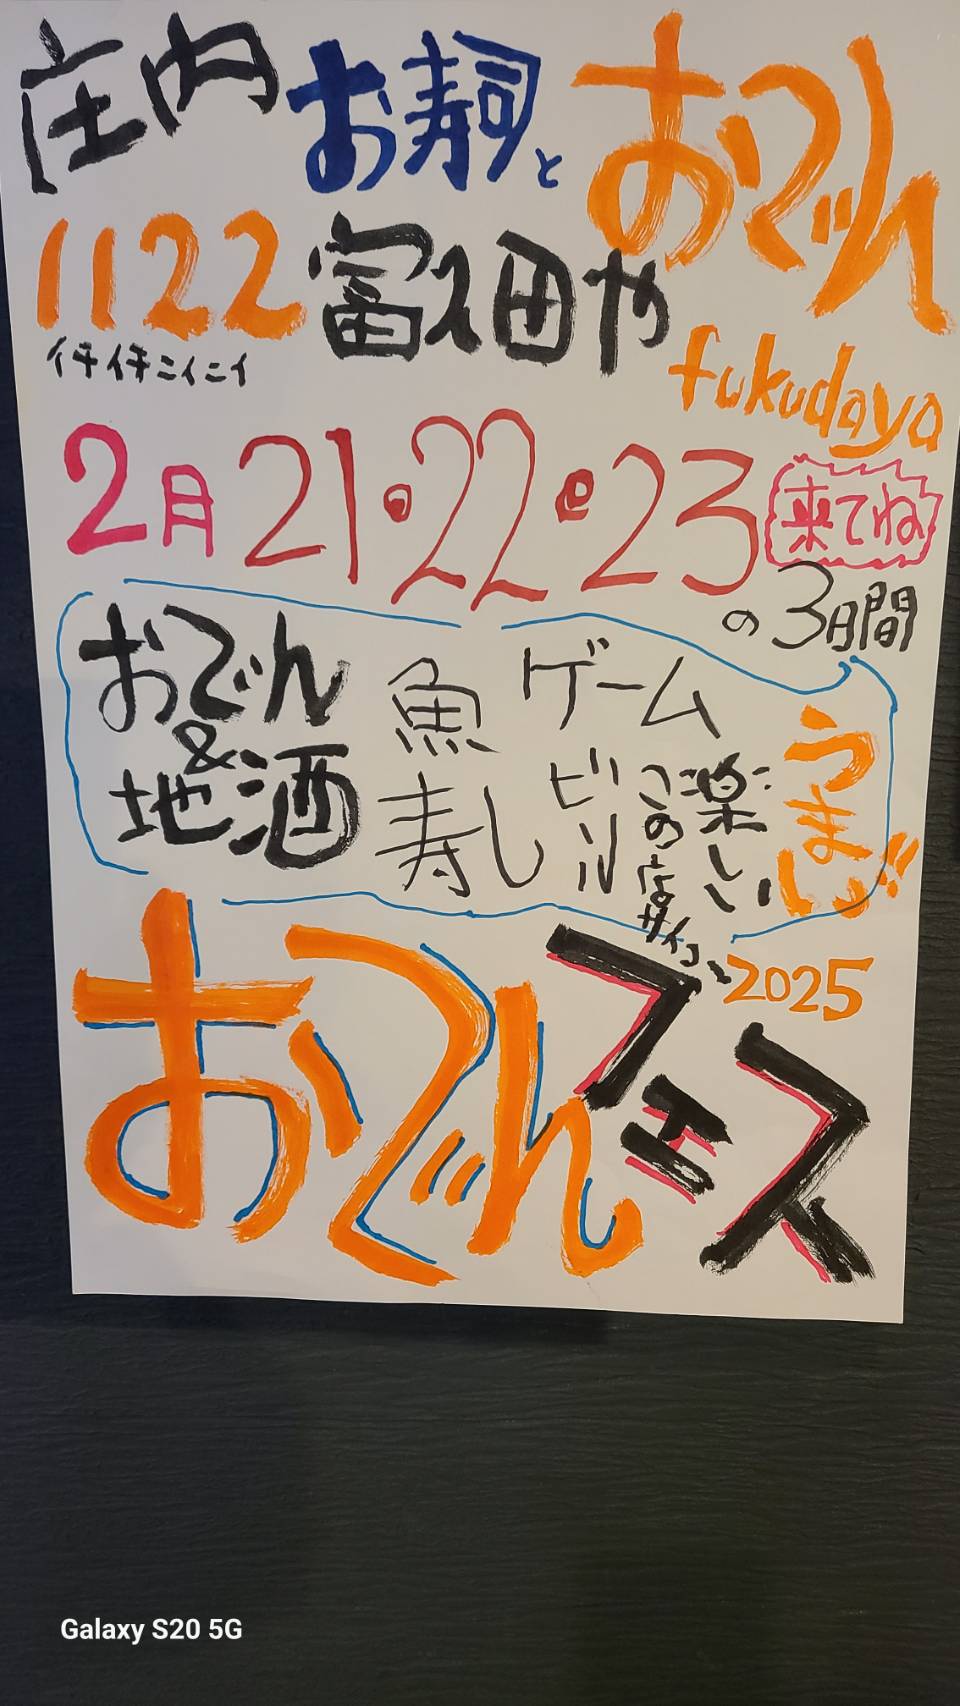 庄内 お寿司と おでん
1122 富久田や
イチイチニイニイ
fukudaya
2月 21・22・23 来てね
の3日間
おでん
&
地酒
魚
寿し
ゲーム
ビール
この店サイコー
楽しい
うまい!!
2025
おでんフェス
Galaxy S20 5G